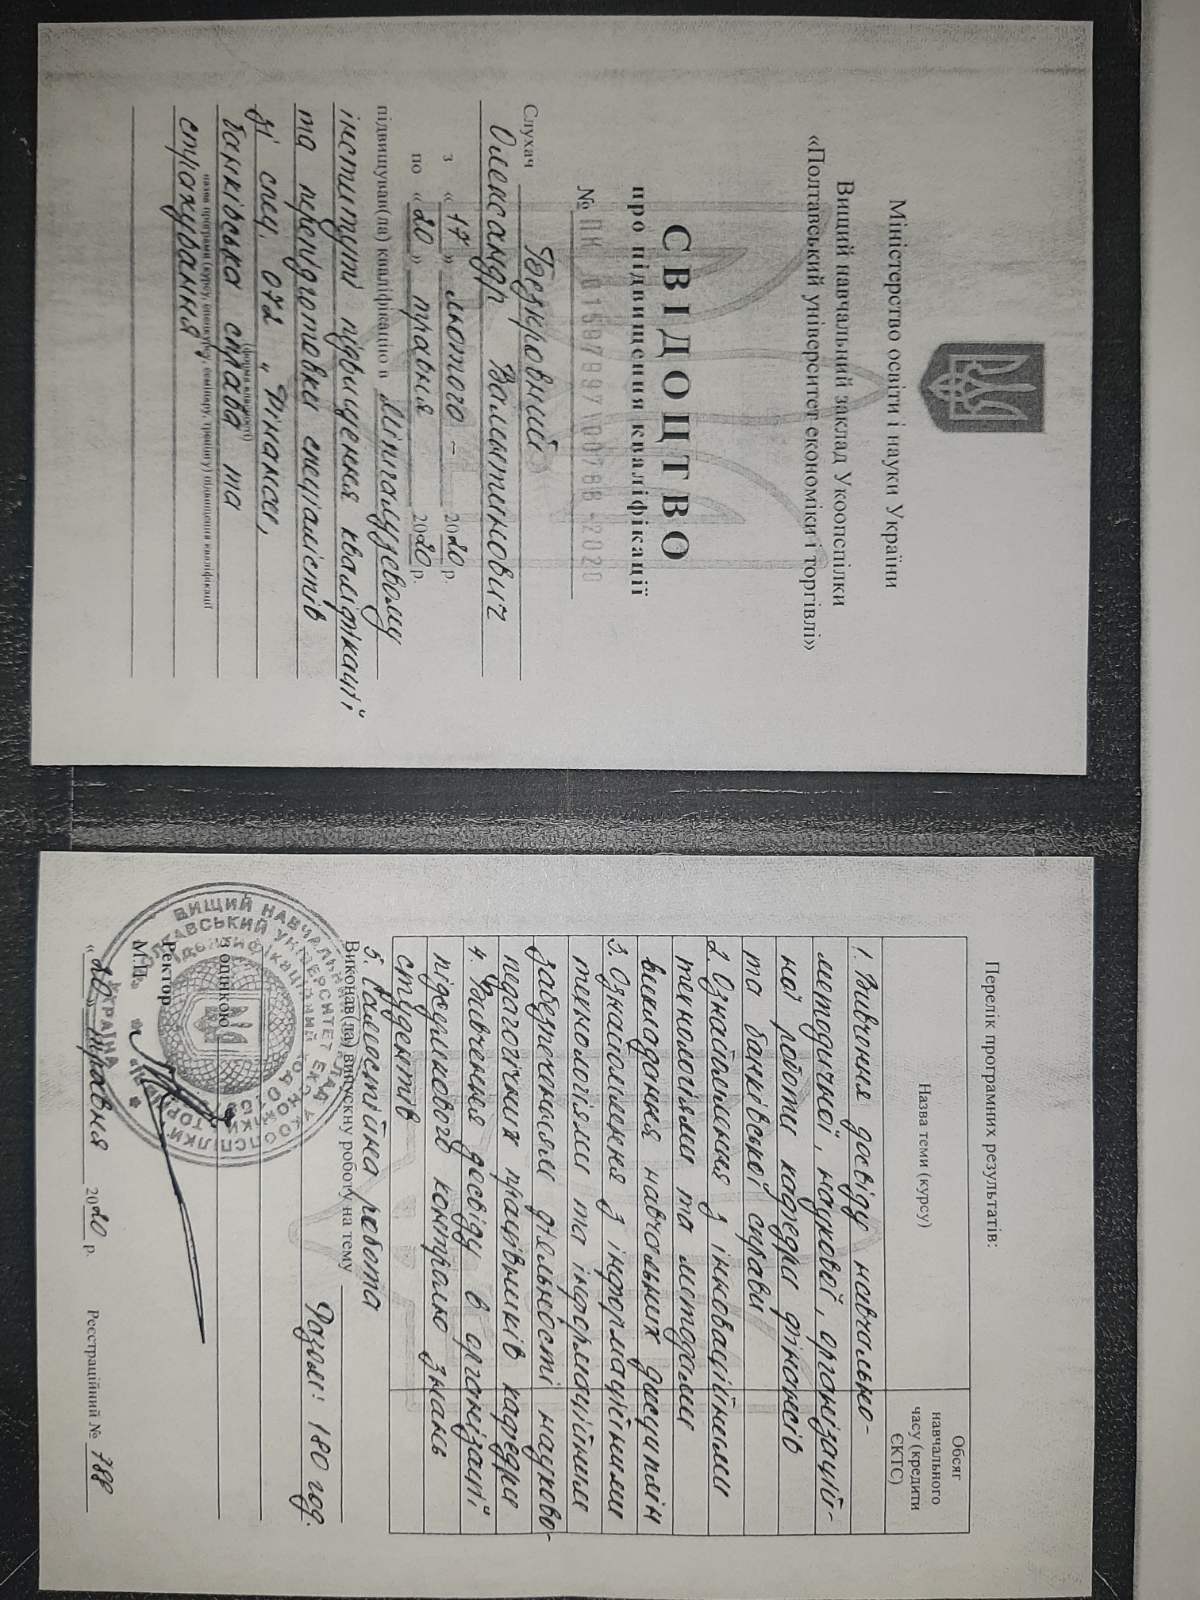 Міністерство освіти і науки України
Вищий навчальний заклад Укоопспілки
«Полтавський університет економіки і торгівлі»
СВІДОЦТВО
про підвищення кваліфікації
№ ПК 01597997\00788-2020
Слухач Безкровний
Олександр Валентинович
з «17» лютого – 2020 р.
по «20» травня 2020 р.
підвищував(ла) кваліфікацію в Міжгалузевому
інституті підвищення кваліфікації
та перепідготовки спеціалістів
зі спец. 072 „Фінанси,
(форма власності)
банківська справа та
назва програми (курсу, спецкурсу, семінару, тренінгу) підвищення кваліфікації
страхування"
Перелік програмних результатів:
Назва теми (курсу)
Обсяг навчального часу (кредити ЄКТС)
1. Вивчення досвіду навчально-
методичної, наукової, організацій-
ної роботи кафедри фінансів
та банківської справи
2. Ознайомлення з інноваційними
технологіями та методами
викладання навчальних дисциплін
3. Ознайомлення з інформаційними
технологіями та інформаційним
забезпеченням діяльності науково-
педагогічних працівників кафедри
4. Вивчення досвіду в організації
підсумкового контролю знань
студентів
5. Самостійна робота
Виконав(ла) випускну роботу на тему
Разом: 180 год.
з оцінкою
Ректор
М.П.
«20» травня 2020 р. Реєстраційний № 788